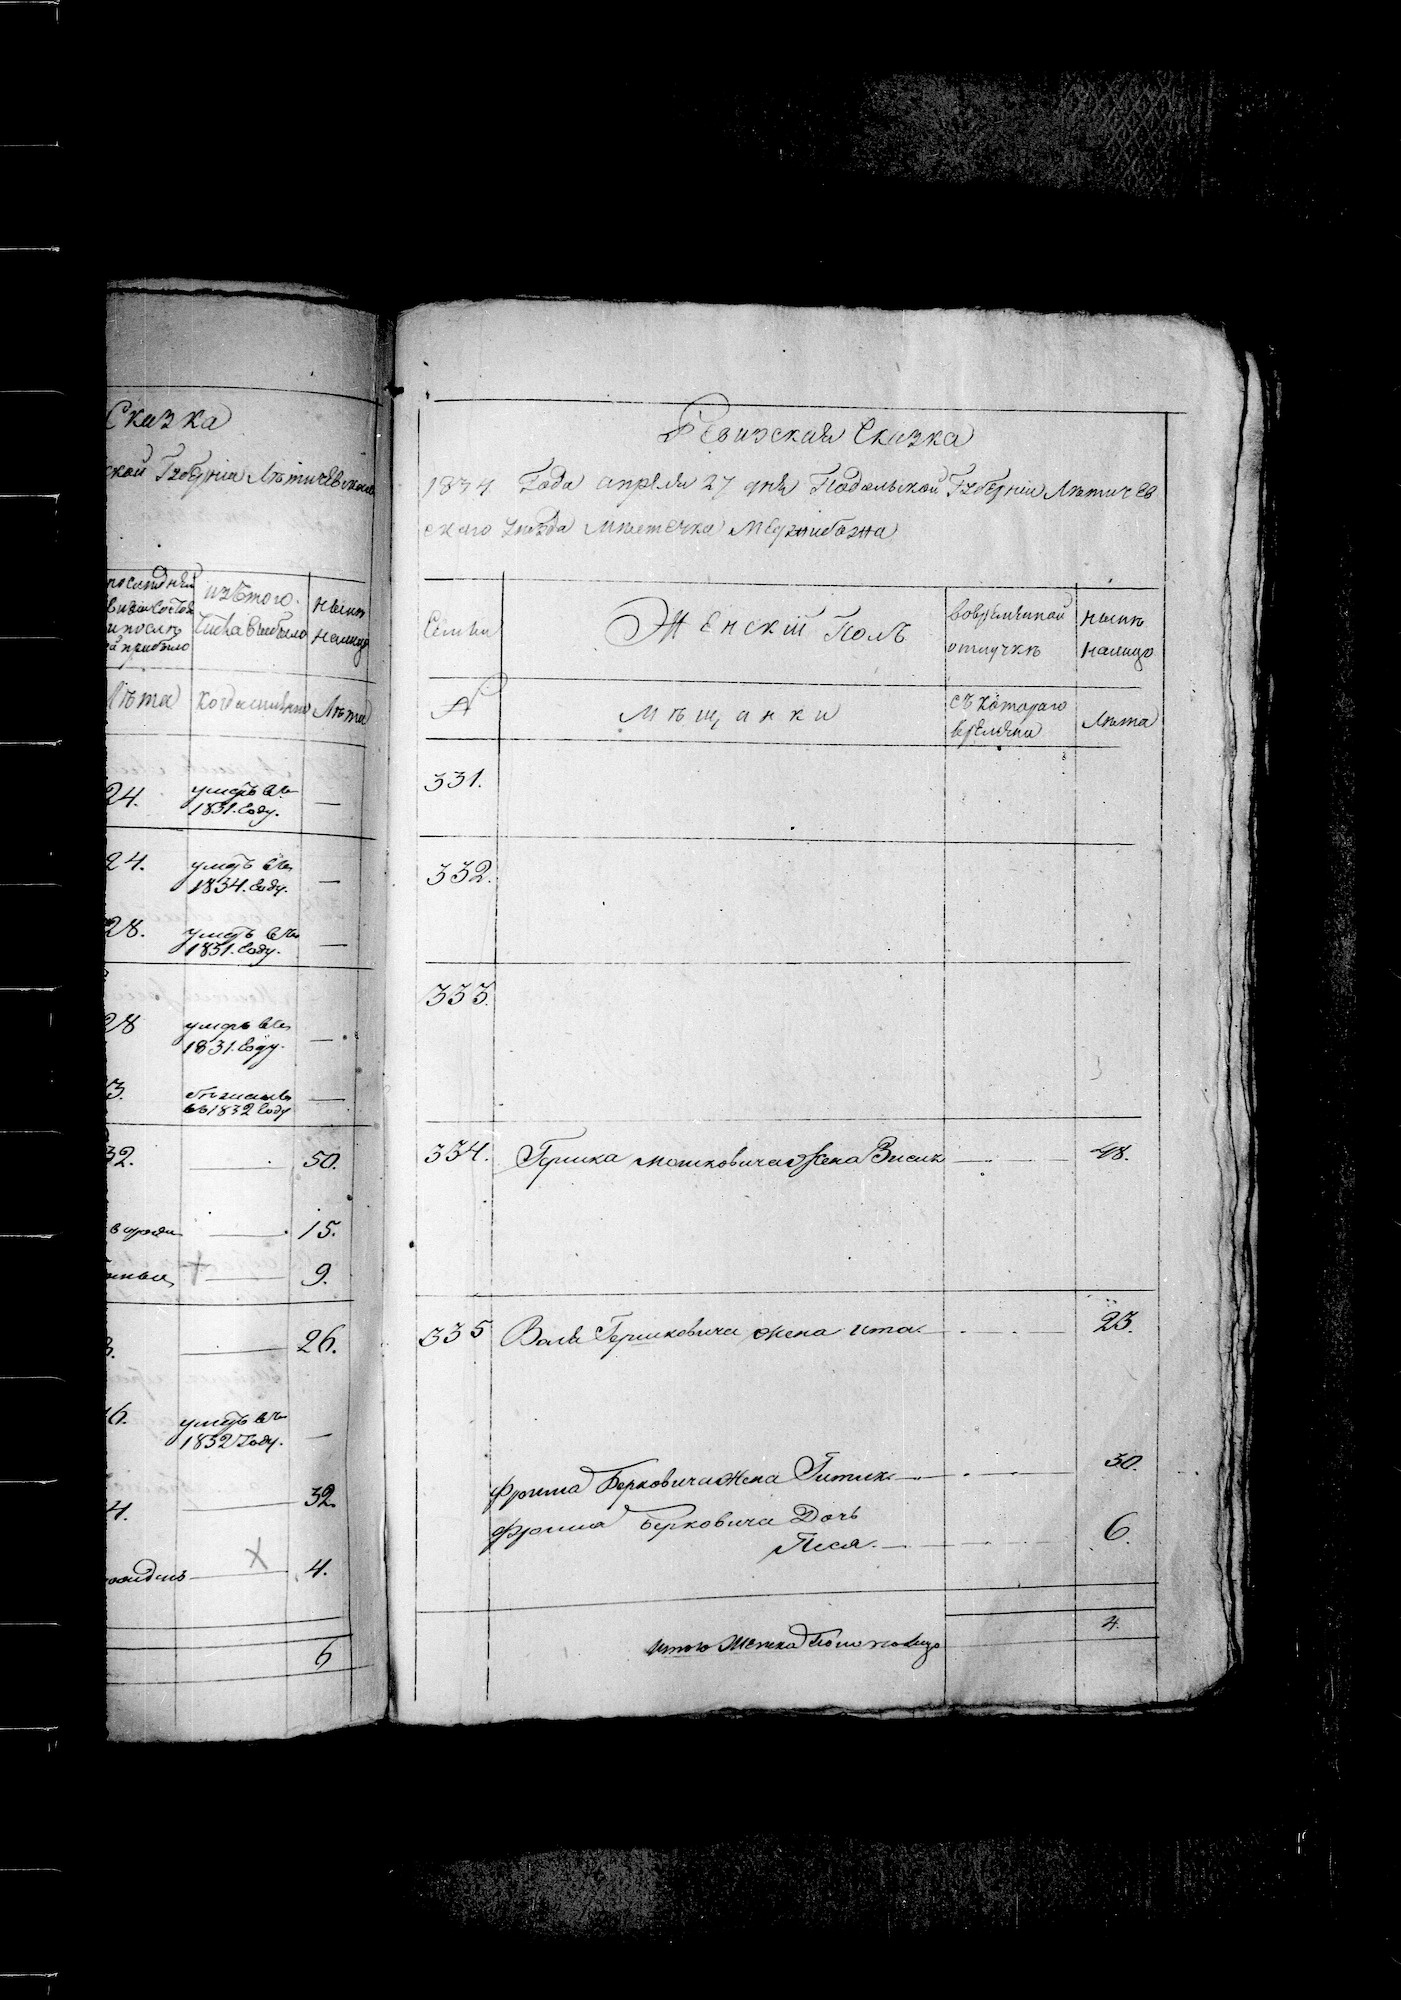 Сказка
ской Губерніи Лѣтичевскаго
изъ того
числа выбыло
нынѣ
налицо
Лѣта
когда именно
Лѣта
24.
умеръ въ
1831. Году.
—
24.
умеръ въ
1834. Году.
—
28.
умеръ въ
1831. Году.
—
28
умеръ въ
1831. Году.
—
3.
въ 1832 Году
—
32.
50.
15.
9.
26.
16.
умеръ въ
1832 Году.
—
4.
32.
4.
6
Ревизская Сказка
1834 Года апреля 27 дня Подольской Губерніи Лѣтичев
скаго уѣзда мѣстечка Меджибожа
Семьи
Женскій Полъ
вовременной
отлучкѣ
нынѣ
налицо
№
Мѣщанки
съ котораго
времени
Лѣта
331.
332.
333.
334. Гершка Мошковича жена 48.
335 Гершковича жена Ита 23.
Берковича жена 30.
Берковича Дочь
Песя. 6.
4.
итого женска Пола налицо